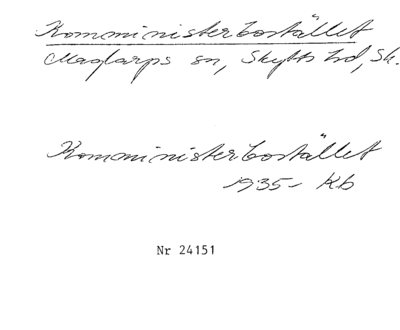 Komministerbostället
Maglarps sn, Skytts hd, Sk.
Komministerbostället
1935- Kb
Nr 24151